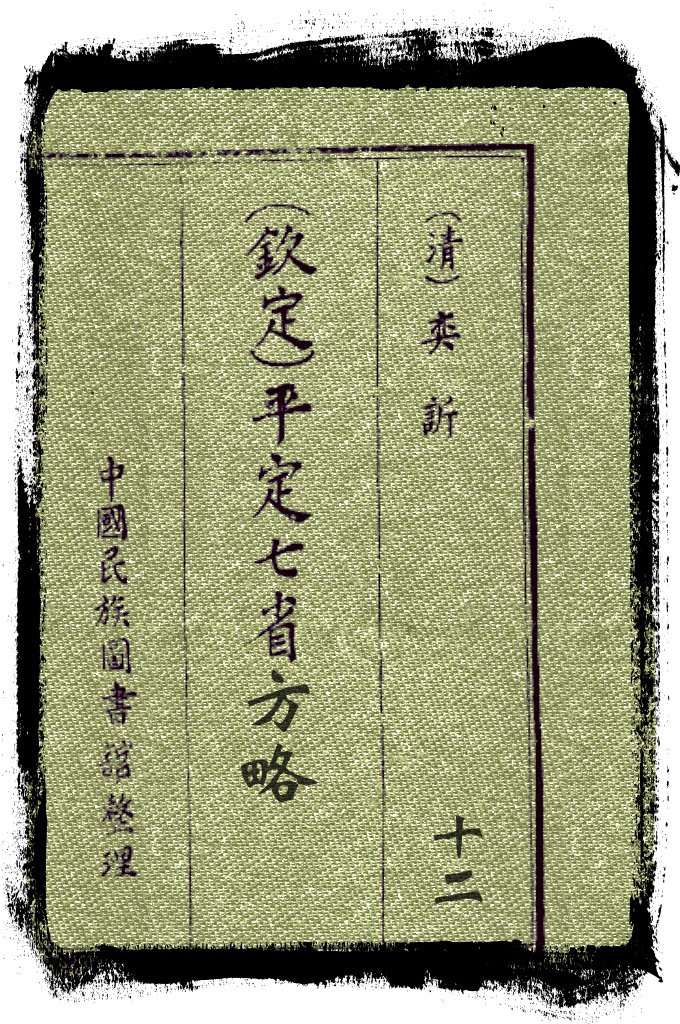 (清)奕訢
十二
(欽定)平定七省方略
中國民族圖書舘整理